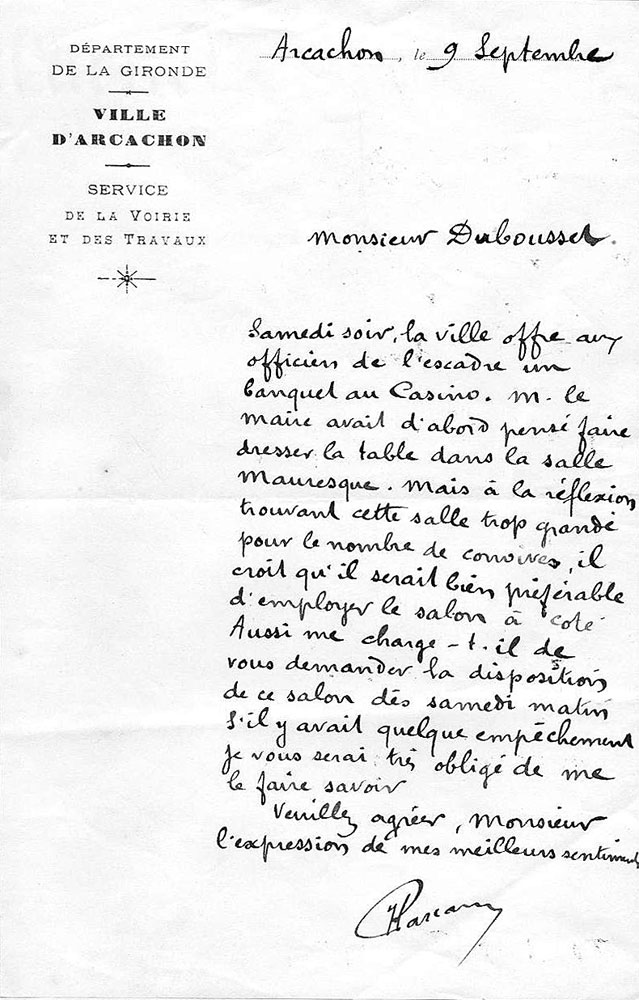 DÉPARTEMENT
DE LA GIRONDE
VILLE
D'ARCACHON
SERVICE
DE LA VOIRIE
ET DES TRAVAUX
Arcachon, le 9 Septembre
Monsieur Dubousset.
Samedi soir, la ville offre aux
officiers de l'escadre un
banquet au Casino. M. le
maire avait d'abord pensé faire
dresser la table dans la salle
Mauresque. Mais à la réflexion
trouvant cette salle trop grande
pour le nombre de convives, il
croit qu'il serait bien préférable
d'employer le salon à coté
Aussi me charge-t-il de
vous demander la disposition
de ce salon dès samedi matin
S'il y avait quelque empêchement
je vous serai très obligé de me
le faire savoir
Veuillez agréer, Monsieur
l'expression de mes meilleurs sentiments